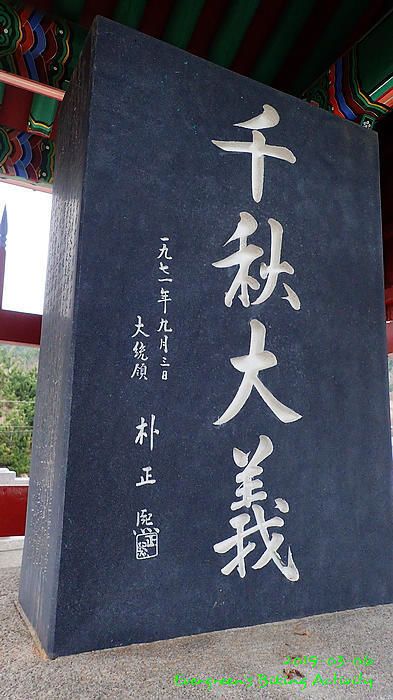 千秋大義
一九七一年九月三日
大統領
朴正熙
Evergreen's Biking Activity